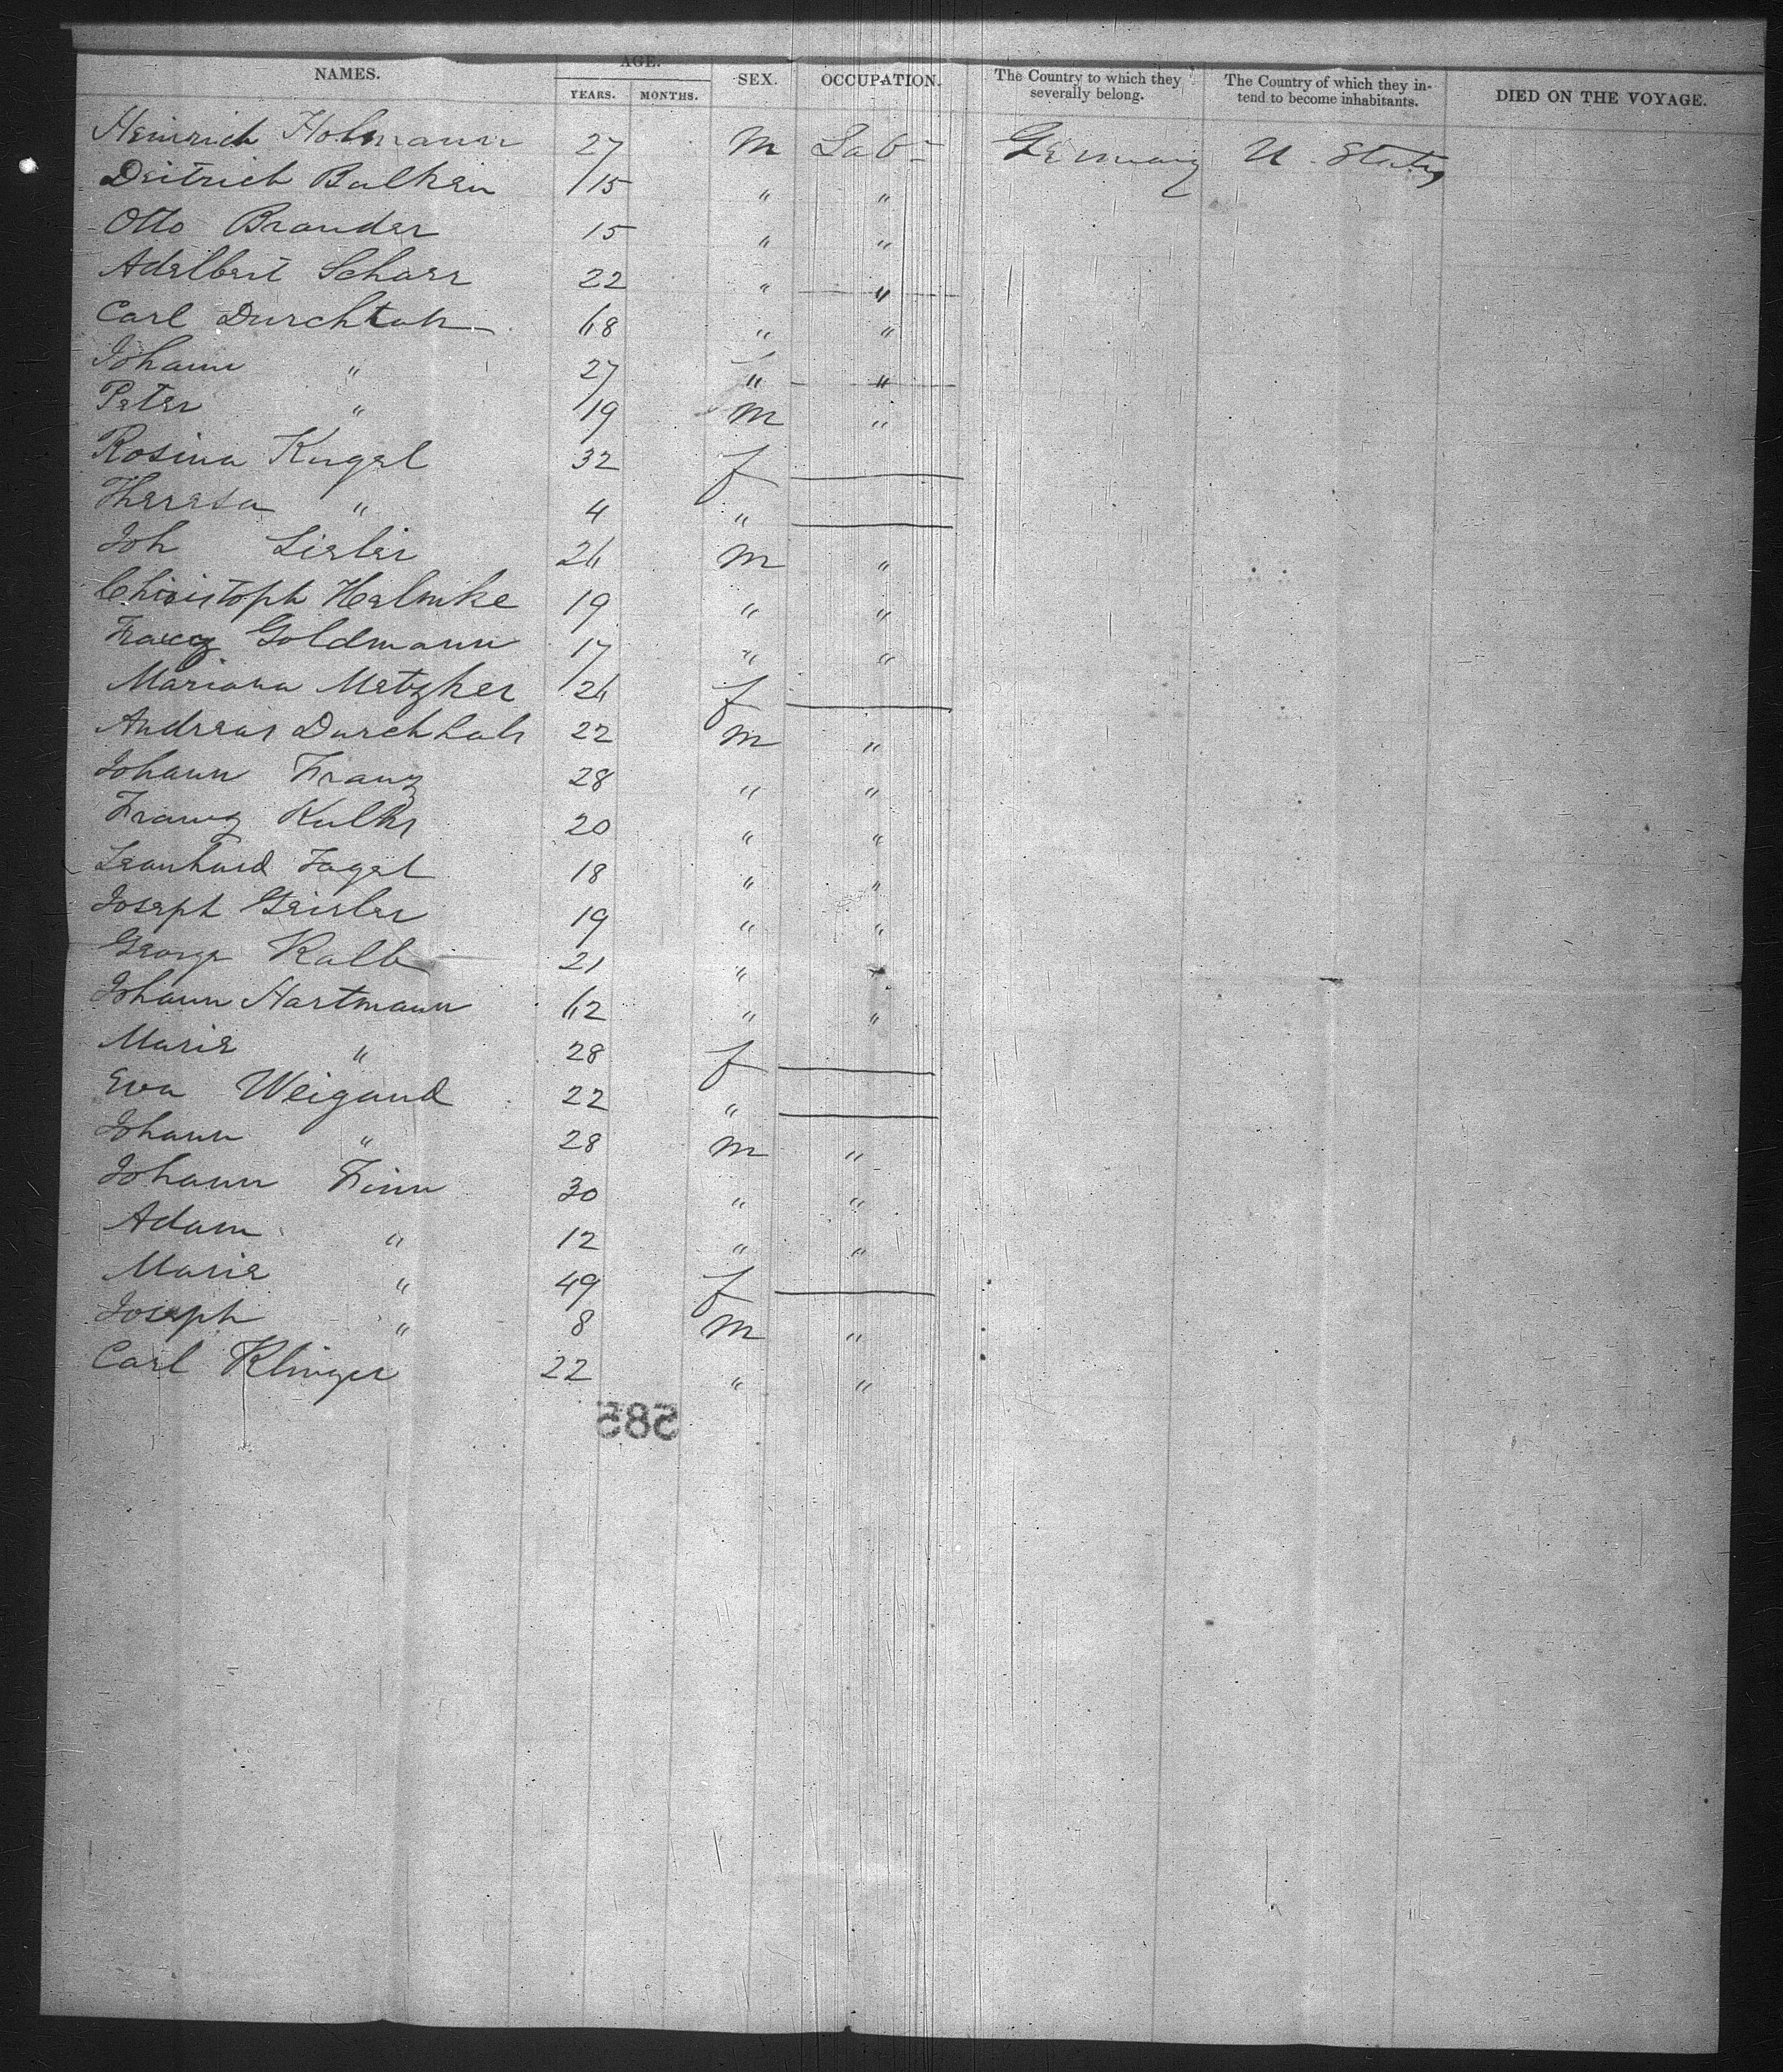 NAMES. AGE. SEX. OCCUPATION. The Country to which they severally belong. The Country of which they intend to become inhabitants. DIED ON THE VOYAGE.
YEARS. MONTHS.
Heinrich Holmann 27 M Lab- Germany U. States
Deitrich Bulken 15 " "
Otto Brander 15 " "
Adelbert Schaer 22 " "
Carl 68 " "
Johann " 27 " "
Peter " 19 M "
Rosina Kugel 32 f
Theresa " 4 "
Joh 26 M "
Christoph Helmke 19 " "
Franz Goldmann 17 " "
Mariana Metzker 26 f
Andreas 22 M "
Johann Franz 28 " "
Franz 20 " "
Leonhard 18 " "
Joseph Geisler 19 " "
George Kalb 21 " "
Johann Hartmann 62 " "
Marie " 28 f
Eva Weigand 22 "
Johann " 28 M "
Johann Finn 30 " "
Adam " 12 " "
Marie " 49 f
Joseph " 8 M "
Carl Klinger 22 " "
585